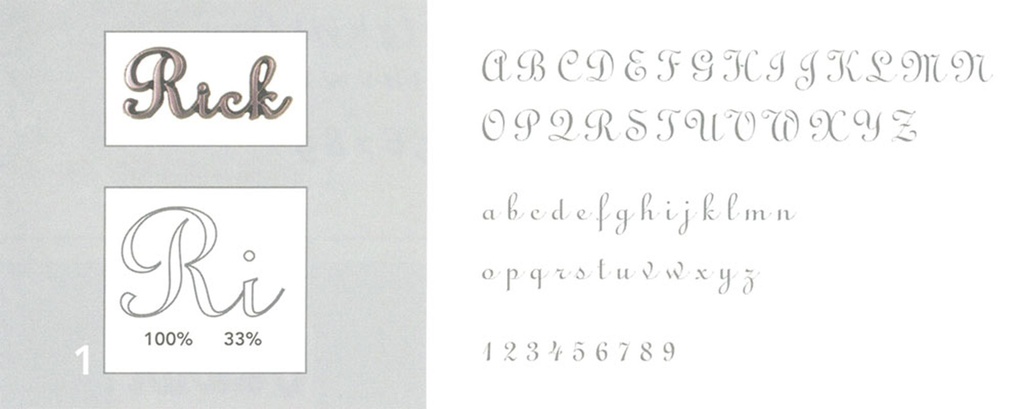 Rick
Ri
100% 33%
1
A B C D E F G H I J K L M N
O P Q R S T U V W X Y Z
a b c d e f g h i j k l m n
o p q r s t u v w x y z
1 2 3 4 5 6 7 8 9